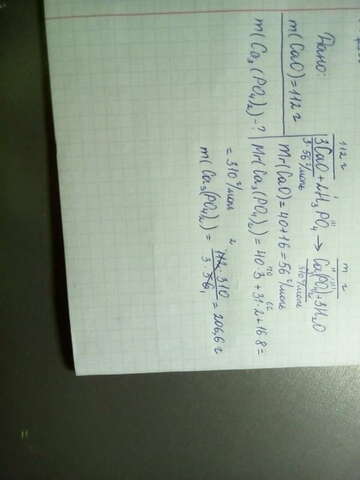 Дано:
m(CaO)=112 г
m(Ca₃(PO₄)₂)-?
112 г m г
3CaO+2H₃PO₄→Ca₃(PO₄)₂+3H₂O
3·56 г/моль 310 г/моль
Mr(CaO)=40+16=56 г/моль
Mr(Ca₃(PO₄)₂)=40·3+31·2+16·8=
=310 г/моль
m(Ca₃(PO₄)₂)=112·310/3·56=206,6 г